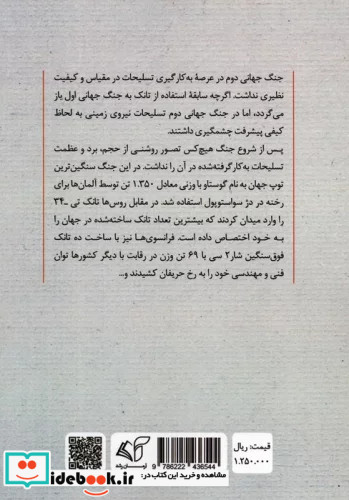 جنگ جهانی دوم در عرصهٔ به‌کارگیری تسلیحات در مقیاس و کیفیت
نظیری نداشت. اگرچه سابقهٔ استفاده از تانک به جنگ جهانی اول باز
می‌گردد، اما در جنگ جهانی دوم تسلیحات نیروی زمینی به لحاظ
کیفی پیشرفت چشمگیری داشتند.
پس از شروع جنگ هیچ‌کس تصور روشنی از حجم، برد و عظمت
تسلیحات به‌کارگرفته‌شده در آن را نداشت. در این جنگ سنگین‌ترین
توپ جهان به نام گوستاو با وزنی معادل ۱.۳۵۰ تن توسط آلمان‌ها برای
رخنه در دژ سواستوپول استفاده شد. در مقابل روس‌ها تانک تی ـ۳۴
را وارد میدان کردند که بیشترین تعداد تانک ساخته‌شده در جهان را
به خود اختصاص داده است. فرانسوی‌ها نیز با ساخت ده تانک
فوق‌سنگین شار۲ سی با ۶۹ تن وزن در رقابت با دیگر کشورها توان
فنی و مهندسی خود را به رخ حریفان کشیدند و...
قیمت: ریال
۱.۲۵۰.۰۰۰
9 786222 436544
مشاهده و خرید این کتاب در:
idebook.ir